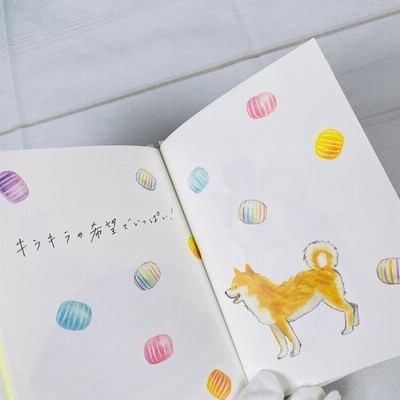 キラキラの希望でいっぱい!